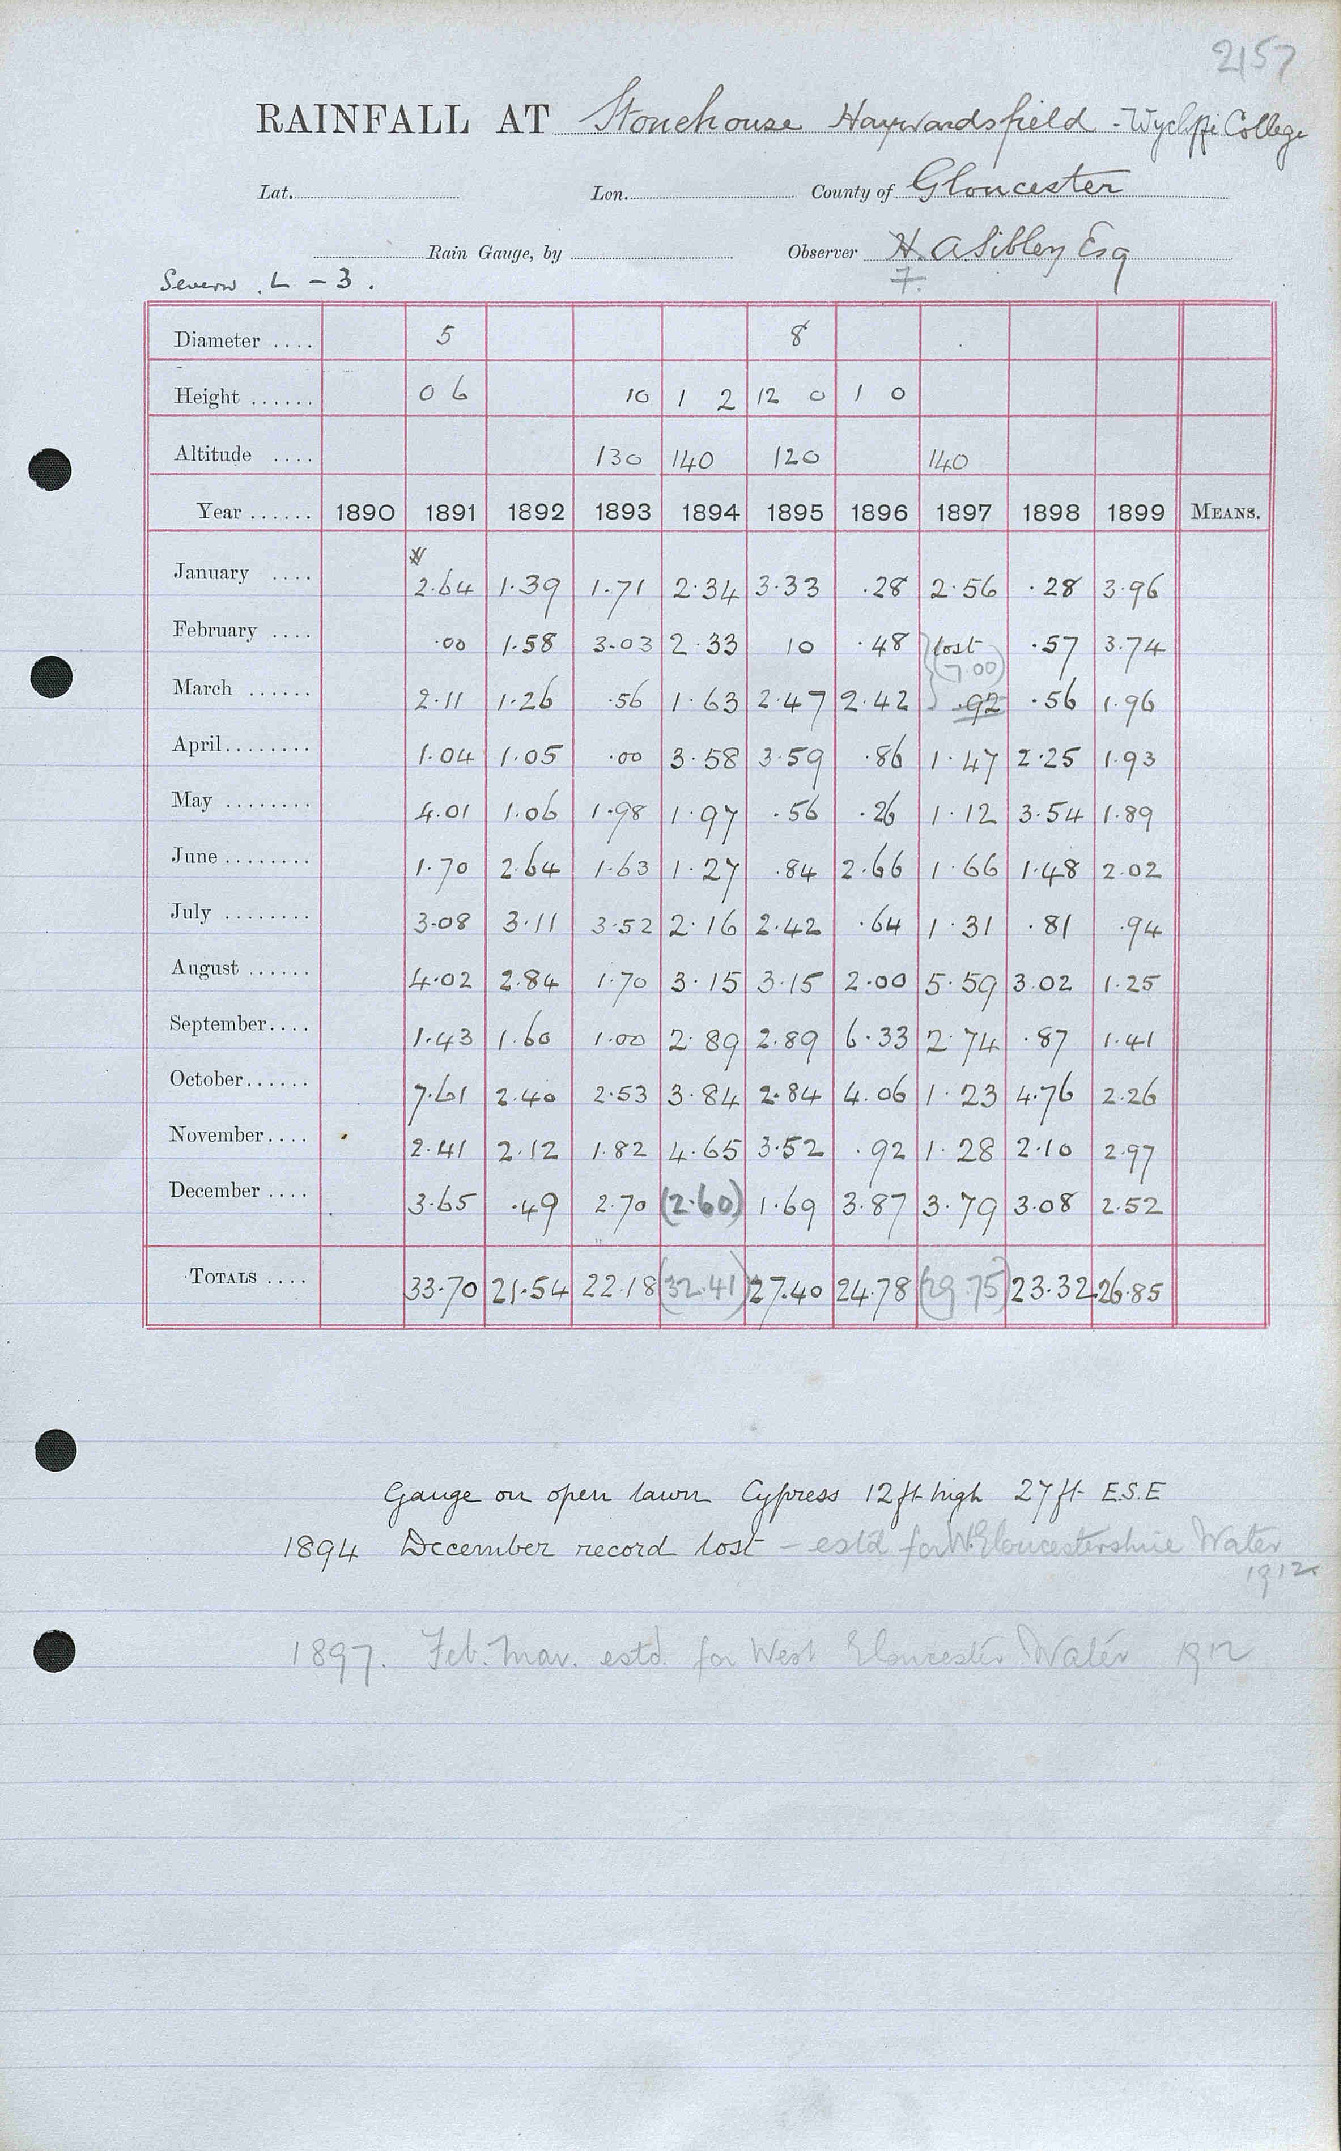 2157
RAINFALL AT Stonehouse Haywardsfield - Wycliffe College
Lat. Lon. County of Gloucester
Rain Gauge, by Observer H. A Sibley Esq
F.
Severn . L - 3 .
Diameter .... 5 8
Height ...... 0 6 10 1 2 12 0 1 0
Altitude .... 130 140 120 140
Year ...... 1890 1891 1892 1893 1894 1895 1896 1897 1898 1899 MEANS.
January .... 2.64 1.39 1.71 2.34 3.33 .28 2.56 .28 3.96
February .... .00 1.58 3.03 2.33 10 .48 lost .57 3.74
(7.00)
March ...... 2.11 1.26 .56 1.63 2.47 2.42 .92 .56 1.96
April........ 1.04 1.05 .00 3.58 3.59 .86 1.47 2.25 1.93
May ........ 4.01 1.06 1.98 1.97 .56 .26 1.12 3.54 1.89
June ........ 1.70 2.64 1.63 1.27 .84 2.66 1.66 1.48 2.02
July ........ 3.08 3.11 3.52 2.16 2.42 .64 1.31 .81 .94
August ...... 4.02 2.84 1.70 3.15 3.15 2.00 5.59 3.02 1.25
September.... 1.43 1.60 1.00 2.89 2.89 6.33 2.74 .87 1.41
October...... 7.61 2.40 2.53 3.84 2.84 4.06 1.23 4.76 2.26
November.... 2.41 2.12 1.82 4.65 3.52 .92 1.28 2.10 2.97
December .... 3.65 .49 2.70 (2.60) 1.69 3.87 3.79 3.08 2.52
TOTALS .... 33.70 21.54 22.18 (32.41) 27.40 24.78 (29.75) 23.32 26.85
Gauge on open lawn Cypress 12 ft high 27 ft E.S.E
1894 December record lost - estd for W. Gloucestershire Water
1912
1897. Feb. Mar. estd for West Gloucester Water 1912